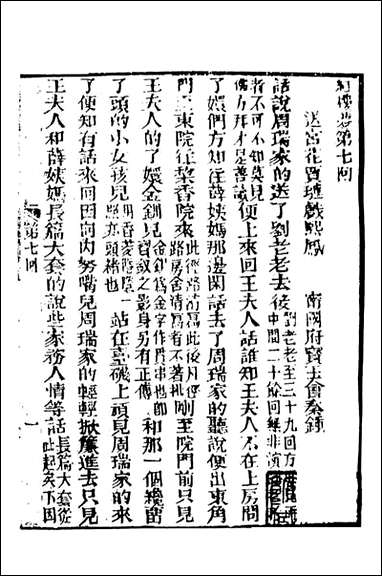 紅樓夢第七回
送宮花賈璉戲熙鳳　甯國府寶玉會秦鐘
話說周瑞家的送了劉老老去後劉老老至三十九回方中間二十餘回無非演
者不可不知莫見便上來回王夫人話誰知王夫人不在上房問
了嬛們方知往薛姨媽那邊閑話去了周瑞家的聽說便出東角
門至東院往梨香院來此後凡徑路房舍清寫者不著批剛至院門前只見
王夫人的了嬛金釧兒金釧為金字作貫串也卽寶釵之影身另有正傳和那一個纔留
了頭的小女孩兒路亦頭緒也站在臺磯上頑見周瑞家的來
了便知有話來回因向內努嘴兒周瑞家的輕輕掀簾進去只見
王夫人和薛姨媽長篇大套的說些家務人情等話長篇大套從此起矣下因
第七回
一